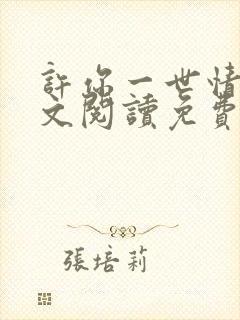 許你一世情
文閱讀免費
張培莉